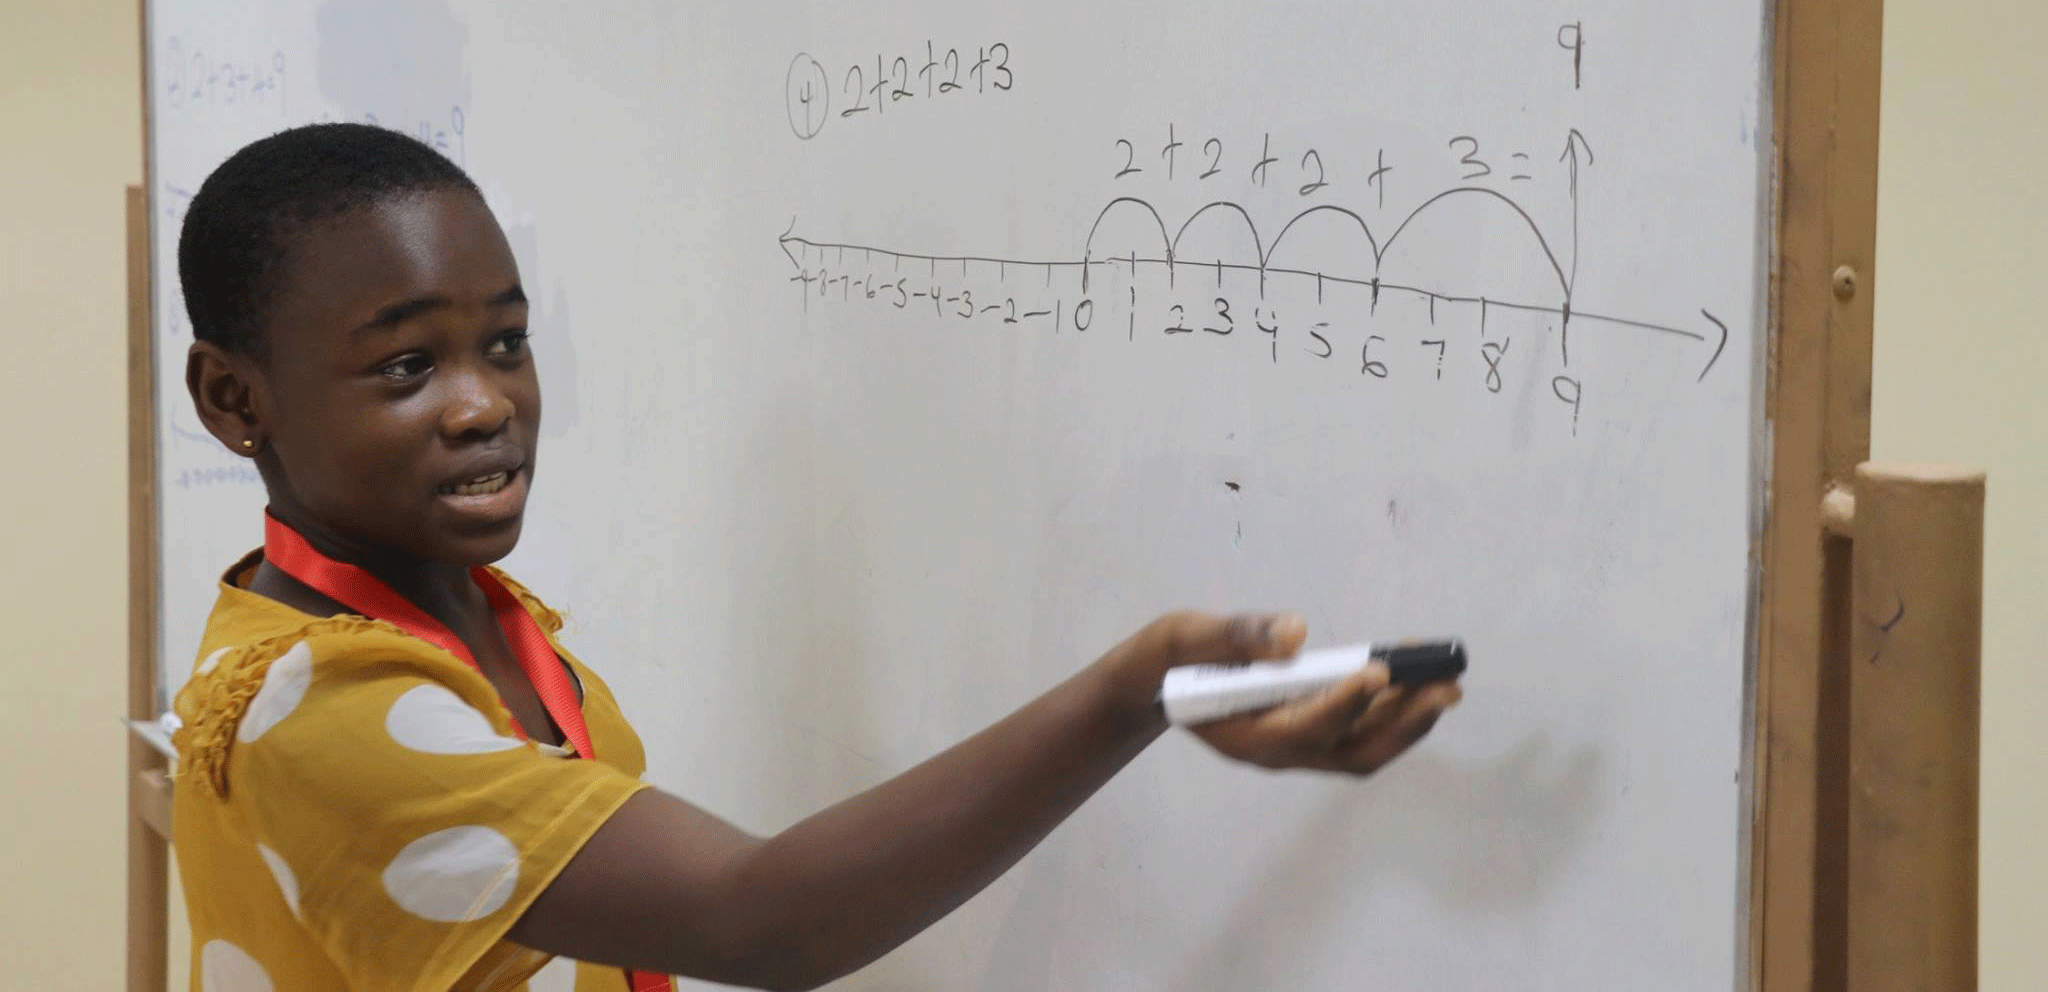 2+3+4=9
④ 2+2+2+3
9
2+2+2+3=
-9-8-7-6-5-4-3-2-1 0 1 2 3 4 5 6 7 8 9